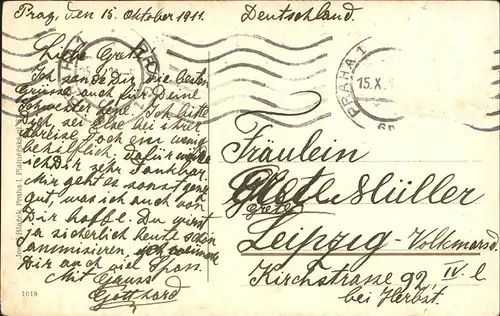 Prag, den 15. Oktober 1911.
Deutschland.
Liebe Grete
Ich sende Dir die besten
Grüsse auch für Deine
Schwester Lene. Ich bitte
Dich sei Else bei ihrer
Abreise Doch ein wenig
behilflich, dafür würde
ich Dir sehr dankbar.
Mir geht es sonst ganz
gut, was ich auch von
Dir hoffe. Du wirst
ja sicherlich heute schön
amusieren,
Dir auch viel Spass.
Mit Gruss
Gotthard
Fräulein
Grete Müller
Grete
Leipzig - Volkmarsd.
Kirchstrasse 92 IV. l
bei Herbst.
PRAHA 1
15.X.
PRAHA 1
Praha I. Platnéřská
1019